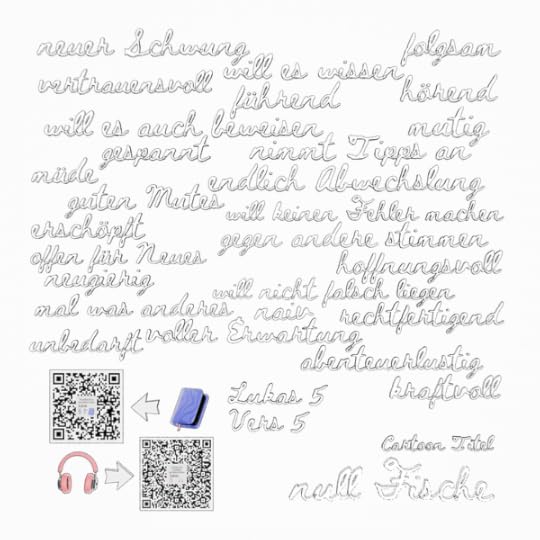 neuer Schwung folgsam
will es wissen
vertrauensvoll hörend
führend
will es auch beweisen mutig
gespannt nimmt Tipps an
müde endlich Abwechslung
guten Mutes will keinen Fehler machen
erschöpft gegen andere stimmen
offen für Neues hoffnungsvoll
neugierig will nicht falsch liegen
mal was anderes naiv rechtfertigend
unbedarft voller Erwartung
abenteuerlustig
kraftvoll
Lukas 5
Vers 5
Cartoon Titel
null Fische